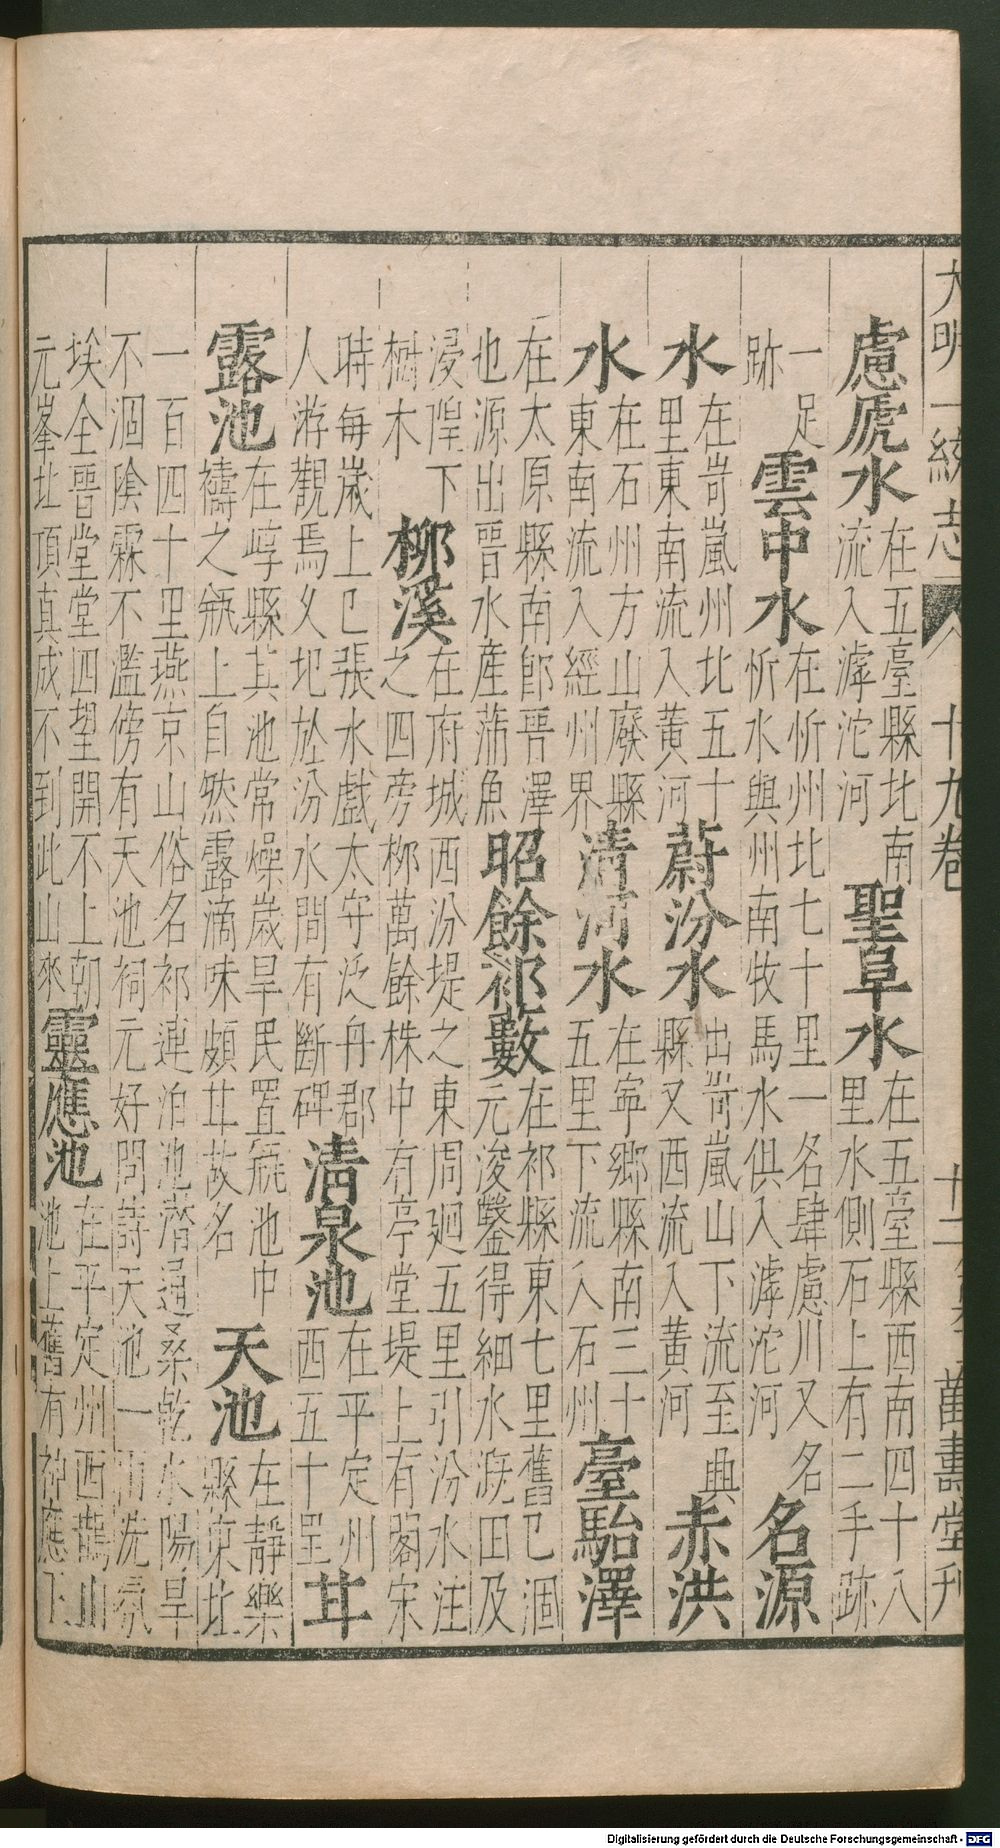 大明一統志 十九卷 十二 萬壽堂刊
慮虒水 在五臺縣北南流入滹沱河 聖阜水 在五臺縣西南四十八里水側石上有二手跡
一足跡 雲中水 在忻州北七十里一名肆慮川又名忻水與州南牧馬水俱入滹沱河 名源
水 在岢嵐州北五十里東南流入黃河 蔚汾水 出岢嵐山下流至興縣又西流入黃河 赤洪
水 在石州方山廢縣東南流入經州界 清河水 在寧鄉縣南三十五里下流入石州 臺駘澤
在太原縣南即晉澤也源出晉水產蒲魚 昭餘祁藪 在祁縣東七里舊已涸元浚鑿得細水溉田及
浸隍下樹木 柳溪 在府城西汾堤之東周迴五里引汾水注之四旁柳萬餘株中有亭堂堤上有閣宋
時每歲上巳張水戲太守泛舟郡人游觀焉乂圯於汾水間有斷碑 清泉池 在平定州西五十里 苷
露池 在崞縣其池常燥歲旱民置瓶池中禱之瓶上自然露滴味頗苷故名 天池 在靜樂縣東北
一百四十里燕京山俗名祁連泊池潛通桑乾水陽旱不涸陰霖不濫傍有天池祠元好問詩天池一雨洗氛
埃全晉堂堂四望開不上朝元峯北頂真成不到此山來 靈應池 在平定州西鵲山池上舊有神應下
Digitalisierung gefördert durch die Deutsche Forschungsgemeinschaft - DFG